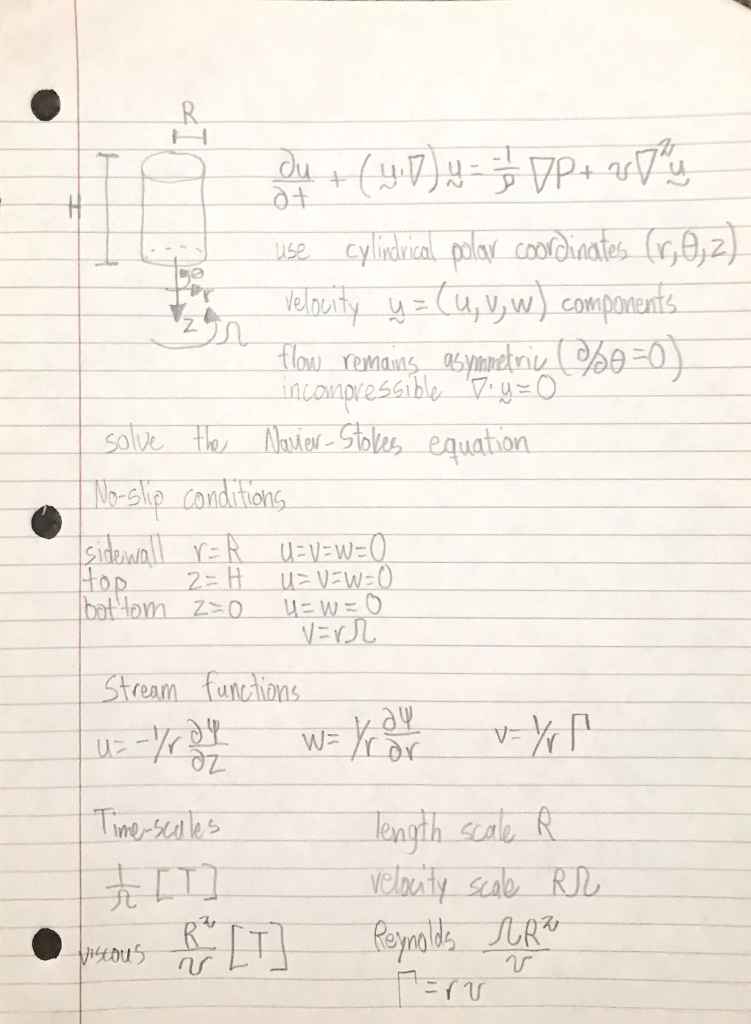 R
H
∂u/∂t + (u·∇)u = -1/ρ ∇P + ν∇²u
use cylindrical polar coordinates (r, θ, z)
θ
r
z
Ω
velocity u = (u, v, w) components
flow remains asymmetric (∂/∂θ = 0)
incompressible ∇·u = 0
solve the Navier-Stokes equation
No-slip conditions
sidewall r = R u = v = w = 0
top z = H u = v = w = 0
bottom z = 0 u = w = 0
v = rΩ
Stream functions
u = -1/r ∂ψ/∂z w = 1/r ∂ψ/∂r v = 1/r Γ
Time-scales length scale R
1/Ω [T] velocity scale RΩ
viscous R²/ν [T] Reynolds ΩR²/ν
Γ = rv